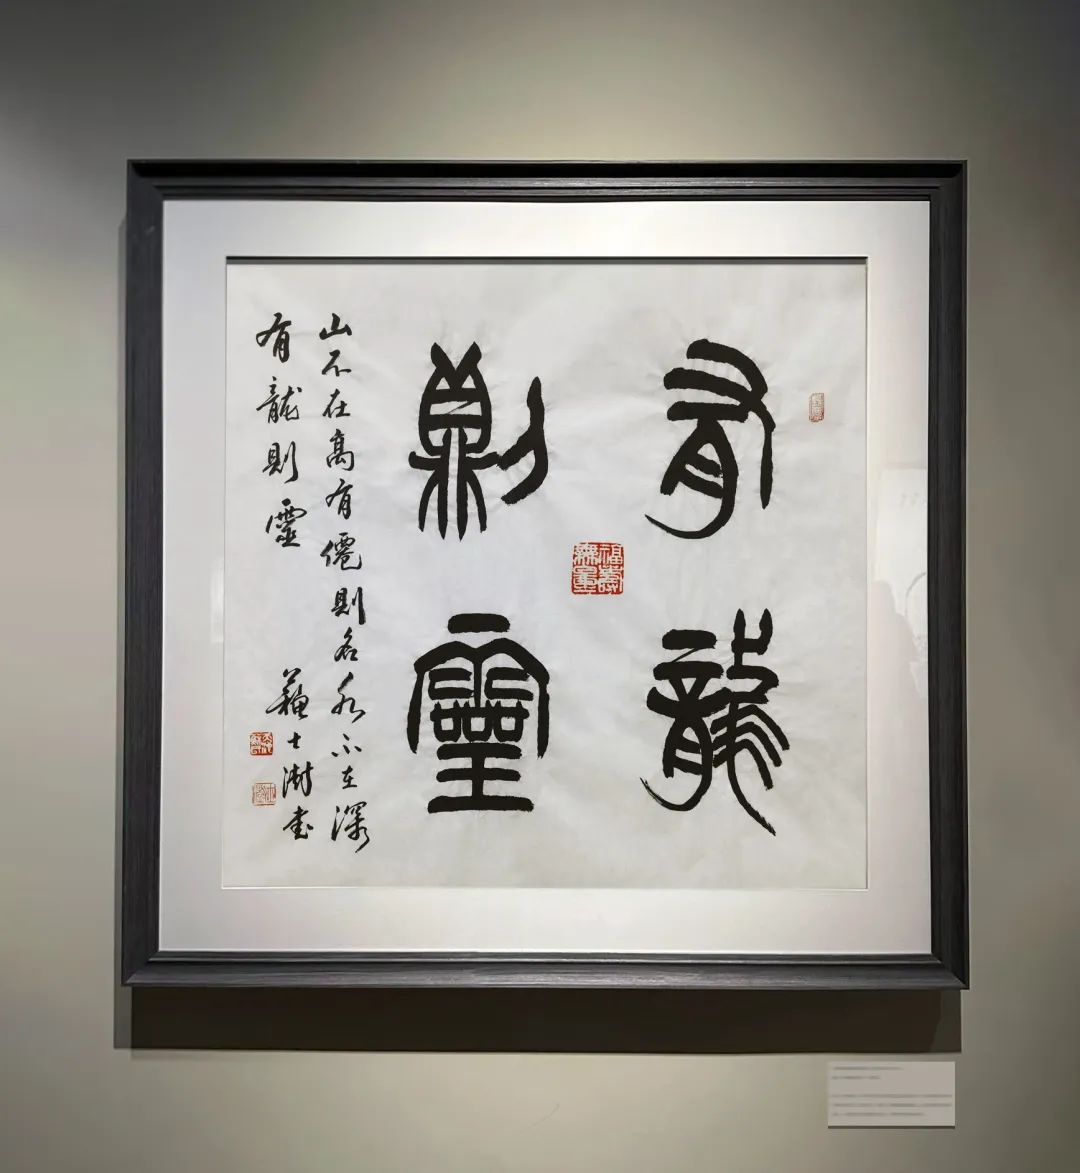 有龍
則靈
福壽
無量
山不在高有僊則名水不在深
有龍則靈
蘇士澍書